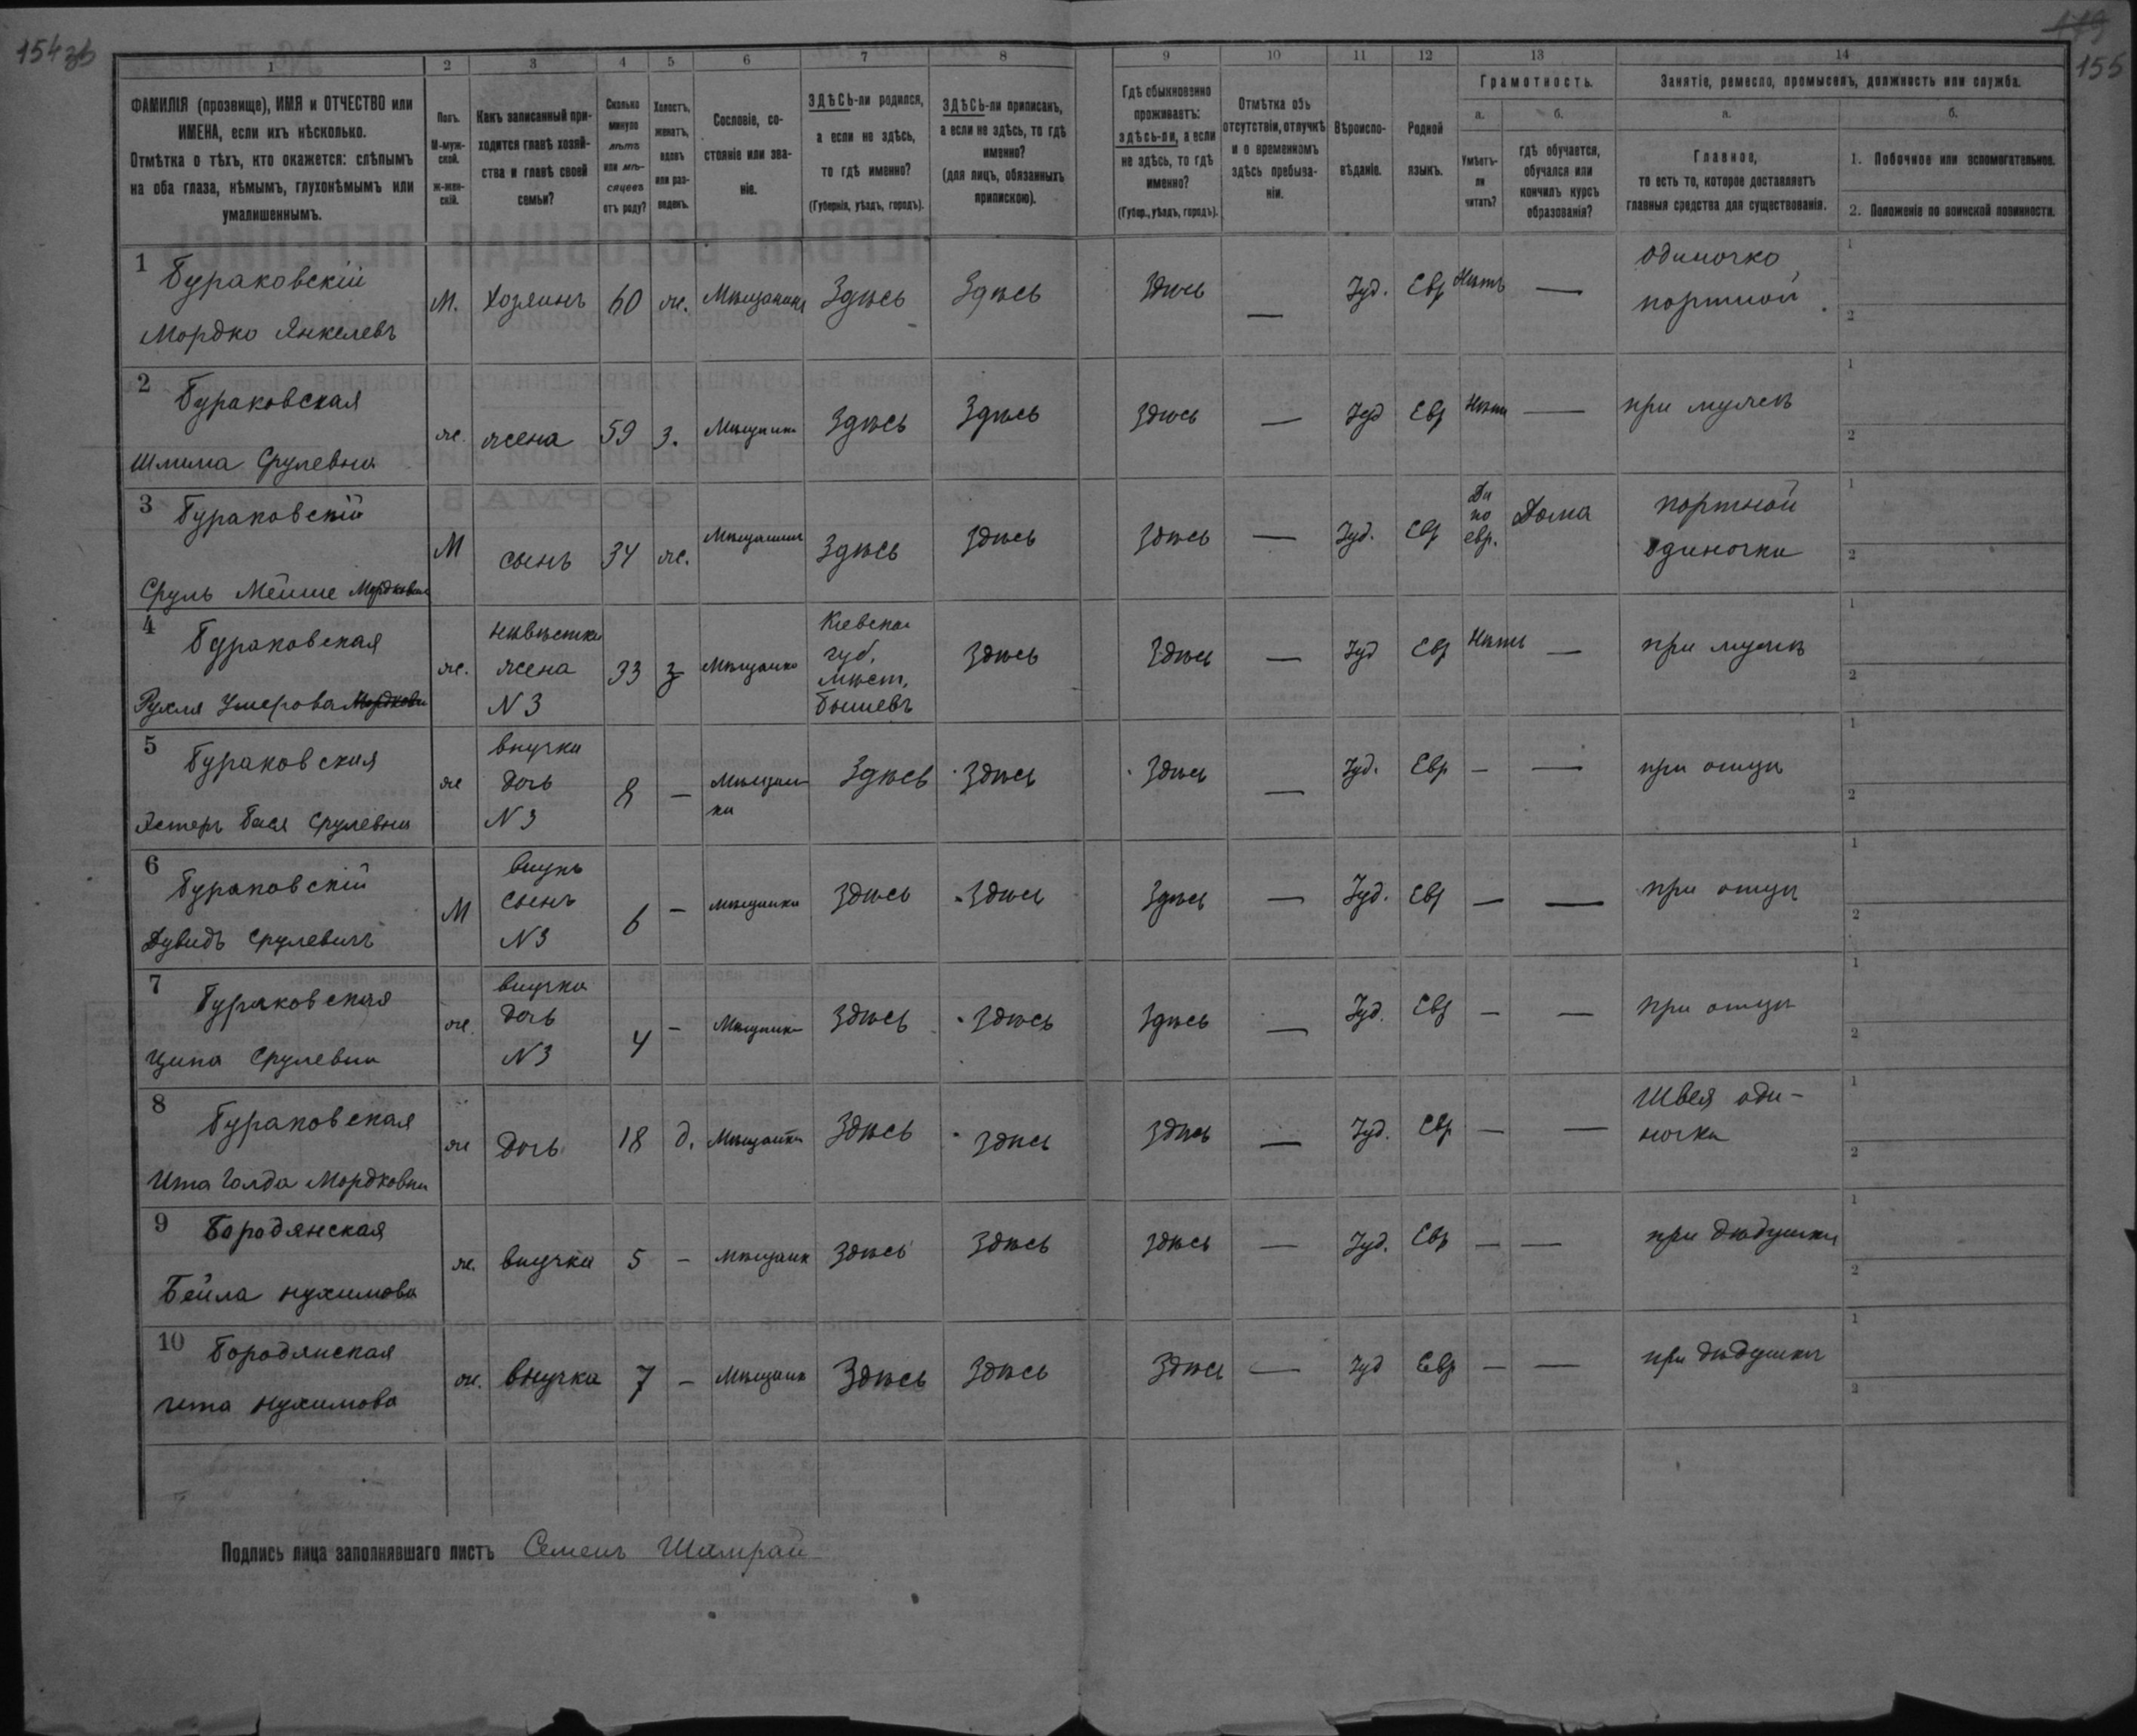 154 об
119
155
1 2 3 4 5 6 7 8 9 10 11 12 13 14
ФАМИЛІЯ (прозвище), ИМЯ и ОТЧЕСТВО или ИМЕНА, если ихъ нѣсколько.
Отмѣтка о тѣхъ, кто окажется: слѣпымъ на оба глаза, нѣмымъ, глухонѣмымъ или умалишеннымъ.
Полъ. М-мужской. ж-женскій.
Какъ записанный приходится главѣ хозяйства и главѣ своей семьи?
Сколько минуло лѣтъ или мѣсяцевъ отъ роду?
Холостъ, женатъ, вдовъ или разведенъ.
Сословіе, состояніе или званіе.
ЗДѢСЬ-ли родился, а если не здѣсь, то гдѣ именно? (Губернія, уѣздъ, городъ).
ЗДѢСЬ-ли приписанъ, а если не здѣсь, то гдѣ именно? (для лицъ, обязанныхъ припискою).
Гдѣ обыкновенно проживаетъ: здѣсь-ли, а если не здѣсь, то гдѣ именно? (Губер., уѣздъ, городъ).
Отмѣтка объ отсутствіи, отлучкѣ и о временномъ здѣсь пребываніи.
Вѣроисповѣданіе.
Родной языкъ.
Грамотность.
а. Умѣетъ-ли читать?
б. гдѣ обучается, обучался или кончилъ курсъ образованія?
Занятіе, ремесло, промыселъ, должность или служба.
а. Главное, то есть то, которое доставляетъ главныя средства для существованія.
б. 1. Побочное или вспомогательное.
2. Положеніе по воинской повинности.
1 Бураковскій Мордко Янкелевъ М. Хозяинъ 60 ж. Мѣщанинъ Здѣсь Здѣсь Здѣсь — Іуд. Евр Нѣтъ — одиночка, портной 1 2
2 Бураковская Шлима Срулевна ж. жена 59 з. Мѣщанка Здѣсь Здѣсь Здѣсь — Іуд Евр Нѣтъ — при мужѣ 1 2
3 Бураковскій Сруль Мейше Мордковичъ М сынъ 34 ж. Мѣщанинъ Здѣсь Здѣсь Здѣсь — Іуд. Евр Да по евр. Дома портной одиночка 1 2
4 Бураковская Рухля Умерова Мордкова ж. невѣстка жена N 3 33 з Мѣщанка Кіевская губ. мѣст. Бышевъ Здѣсь Здѣсь — Іуд Евр Нѣтъ — при мужѣ 1 2
5 Бураковская Эстеръ Бася Срулевна ж внучка дочь N 3 8 — Мѣщанка Здѣсь Здѣсь Здѣсь — Іуд. Евр — — при отцѣ 1 2
6 Бураковскій Дувидъ Срулевичъ М внукъ сынъ N 3 6 — мѣщанка Здѣсь Здѣсь Здѣсь — Іуд. Евр — — при отцѣ 1 2
7 Бураковская Ципа Срулевна ж. внучка дочь N 3 4 — Мѣщанка Здѣсь Здѣсь Здѣсь — Іуд. Евр — — при отцѣ 1 2
8 Бураковская Ита Голда Мордковна ж дочь 18 д. Мѣщанка Здѣсь Здѣсь Здѣсь — Іуд. Евр — — Швея одиночка 1 2
9 Бородянская Бейла Нухимова ж. внучка 5 — Мѣщанк Здѣсь Здѣсь Здѣсь — Іуд. Евр — — при дѣдушкѣ 1 2
10 Бородянская Чета Нухимова ж. внучка 7 — Мѣщанк Здѣсь Здѣсь Здѣсь — Іуд Евр — — при дѣдушкѣ 1 2
Подпись лица заполнявшаго листъ Семенъ Шамрай